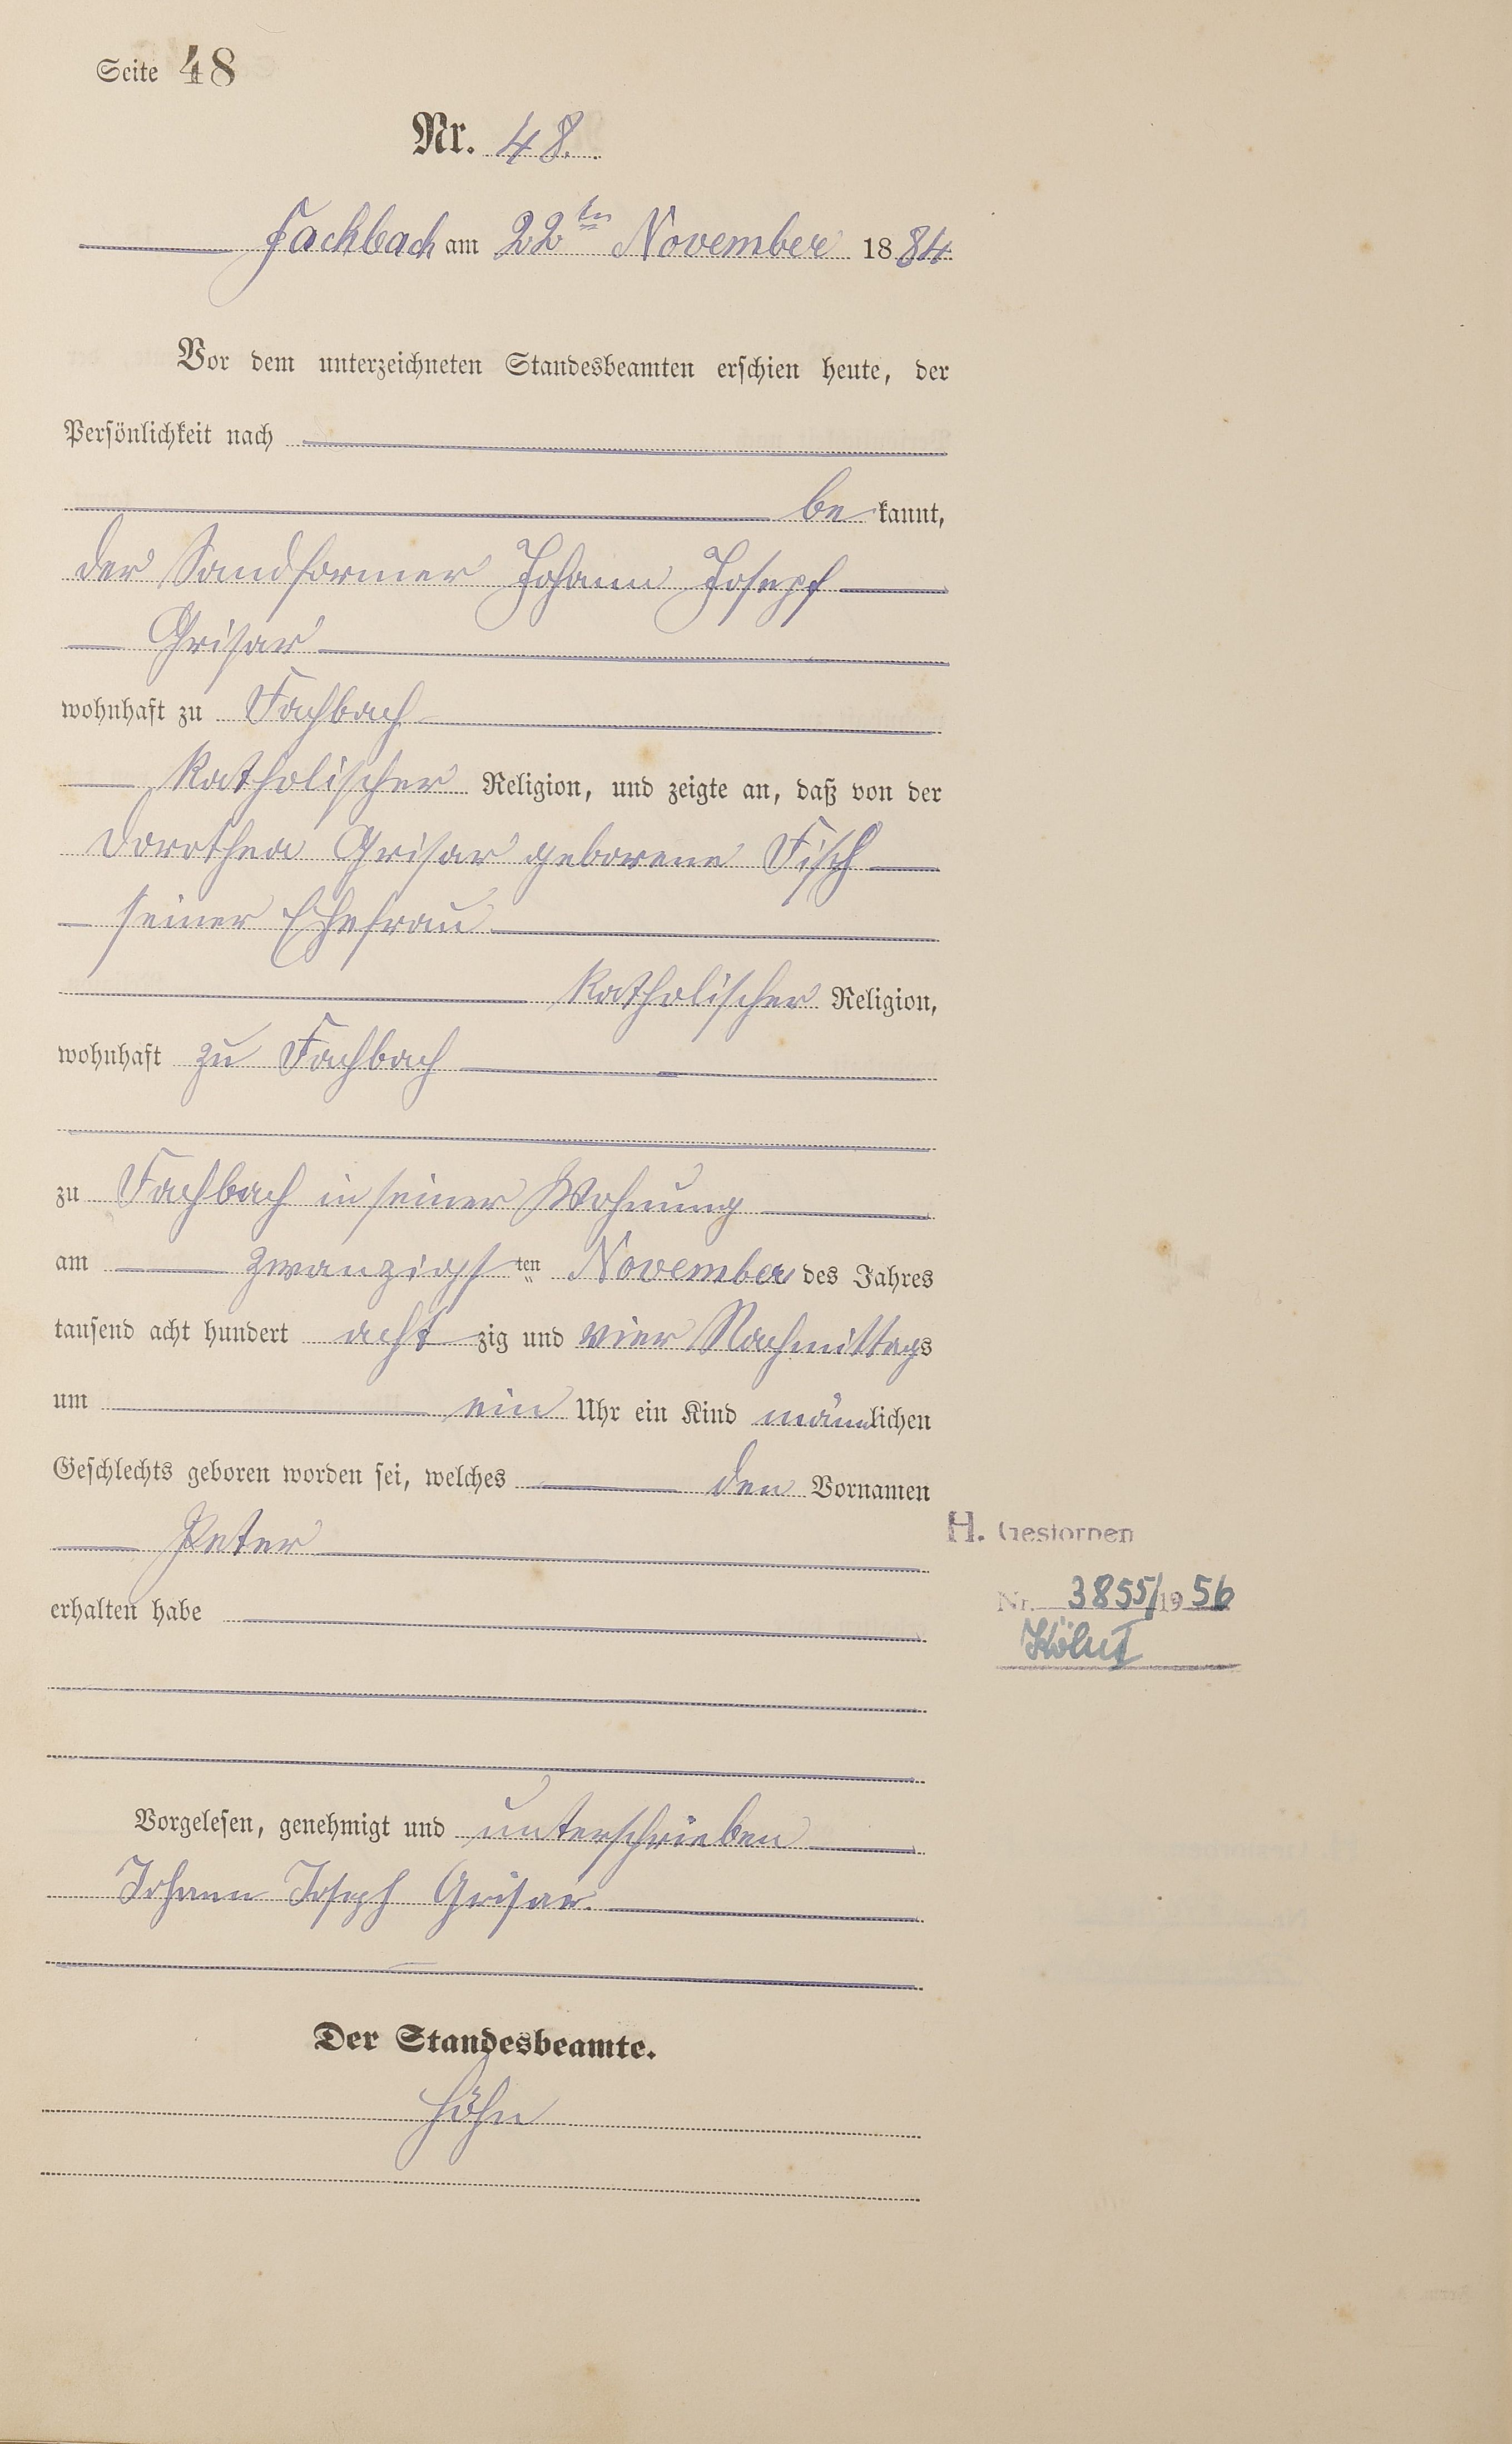 Seite 48
Nr. 48.
Fachbach am 22ten November 1884
Vor dem unterzeichneten Standesbeamten erschien heute, der
Persönlichkeit nach
be kannt,
der Sandformer Johann Josepf
Grisar
wohnhaft zu Fachbach
katholischer Religion, und zeigte an, daß von der
Dorothea Grisar geborene Fisch
seiner Ehefrau
katholischer Religion,
wohnhaft zu Fachbach
zu Fachbach in seiner Wohnung
am zwanzigsten November des Jahres
tausend acht hundert acht zig und vier Nachmittags
um ein Uhr ein Kind männlichen
Geschlechts geboren worden sei, welches den Vornamen
Peter
H. Gestorben
erhalten habe
Nr. 3855/1956
Köln I
Vorgelesen, genehmigt und unterschrieben
Johann Joseph Grisar.
Der Standesbeamte.
Höhn